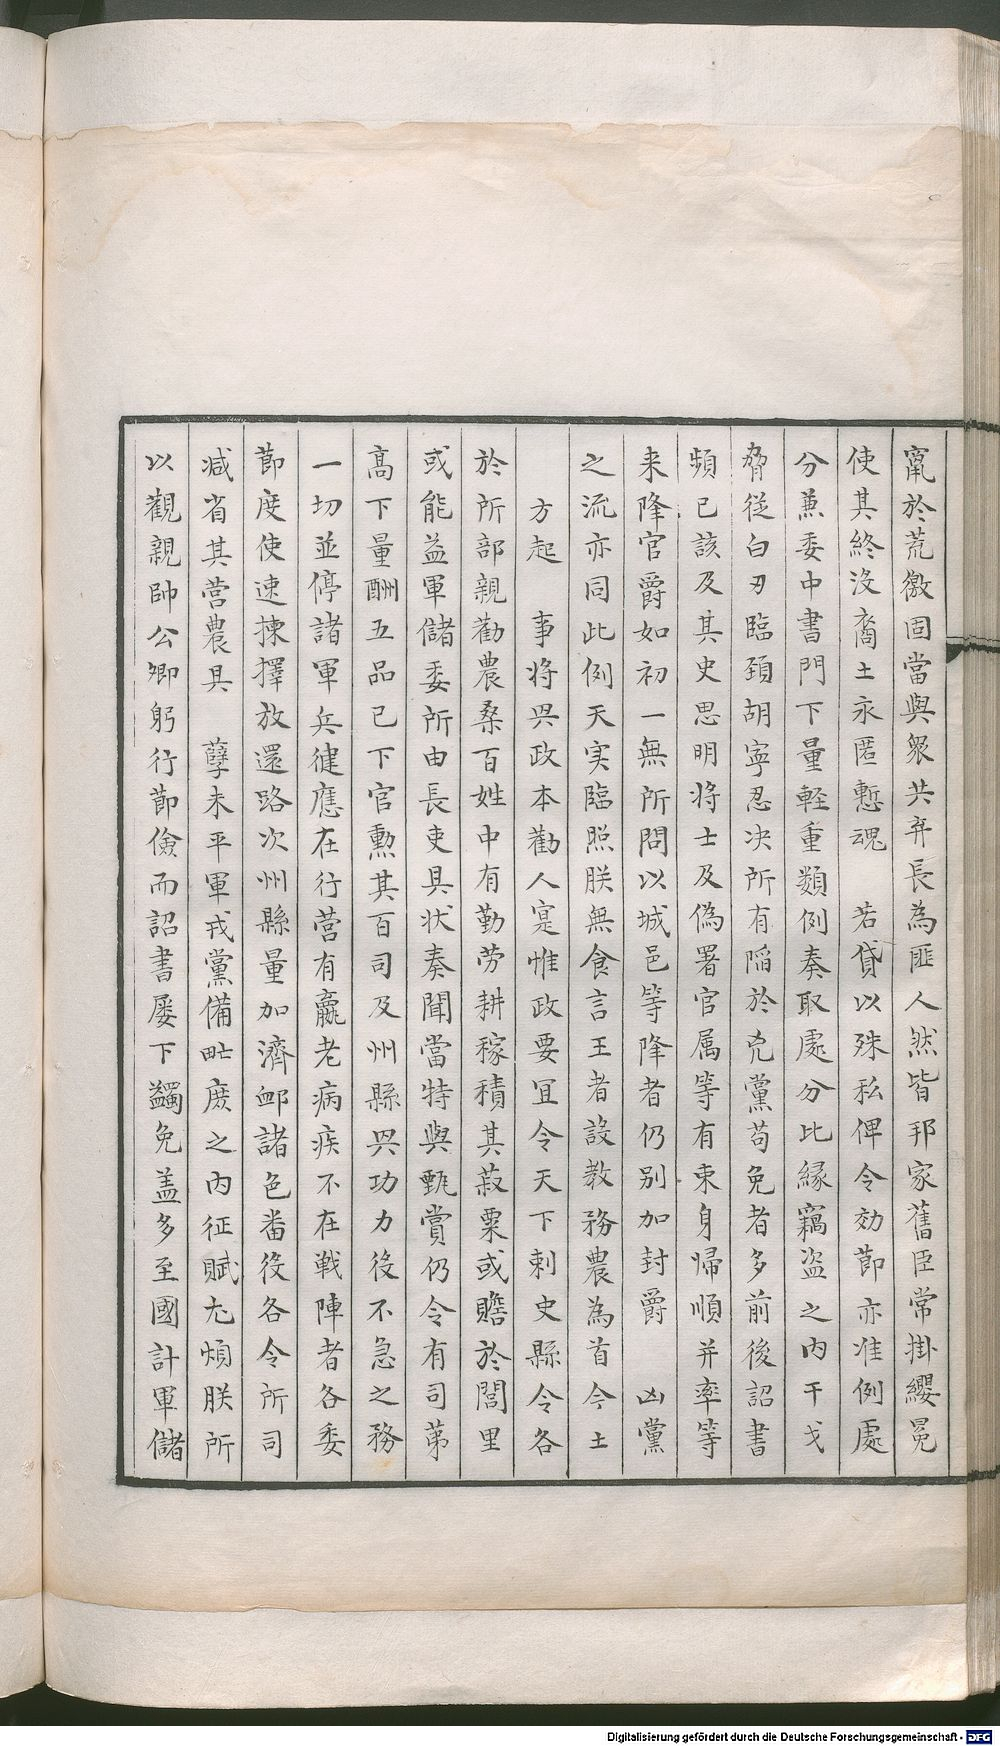 竄於荒徼固當與衆共弃長為匪人然皆邦家舊臣常掛纓冕
使其終沒裔土永匿慙魂　若貸以殊私俾令効節亦准例處
分兼委中書門下量軽重類例奏取處分比縁竊盗之内干戈
脅従白刃臨頚胡寧忍决所有陷於兇黨苟免者多前後詔書
頻已該及其史思明将士及偽署官属等有束身帰順并率等
来降官爵如初一無所問以城邑等降者仍别加封爵　凶黨
之流亦同此例天実臨照朕無食言王者設教務農為首今土
方起　事将㒷政本勸人寔惟政要宜令天下刺史縣令各
於所部親勸農桑百姓中有勤劳耕稼積其菽粟或贍於閭里
或能益軍儲委所由長吏具状奏聞當特與甄賞仍令有司苐
髙下量酬五品已下官勲其百司及州縣㒷功力役不急之務
一切並停諸軍兵健應在行营有羸老病疾不在戦陣者各委
節度使速揀擇放還路次州縣量加濟卹諸色畨役各令所司
减省其营農具　孽未平軍戎黨備甿庻之内征賦尢煩朕所
以觀親帥公卿躬行節儉而詔書屡下蠲免盖多至國計軍儲
Digitalisierung gefördert durch die Deutsche Forschungsgemeinschaft - DFG